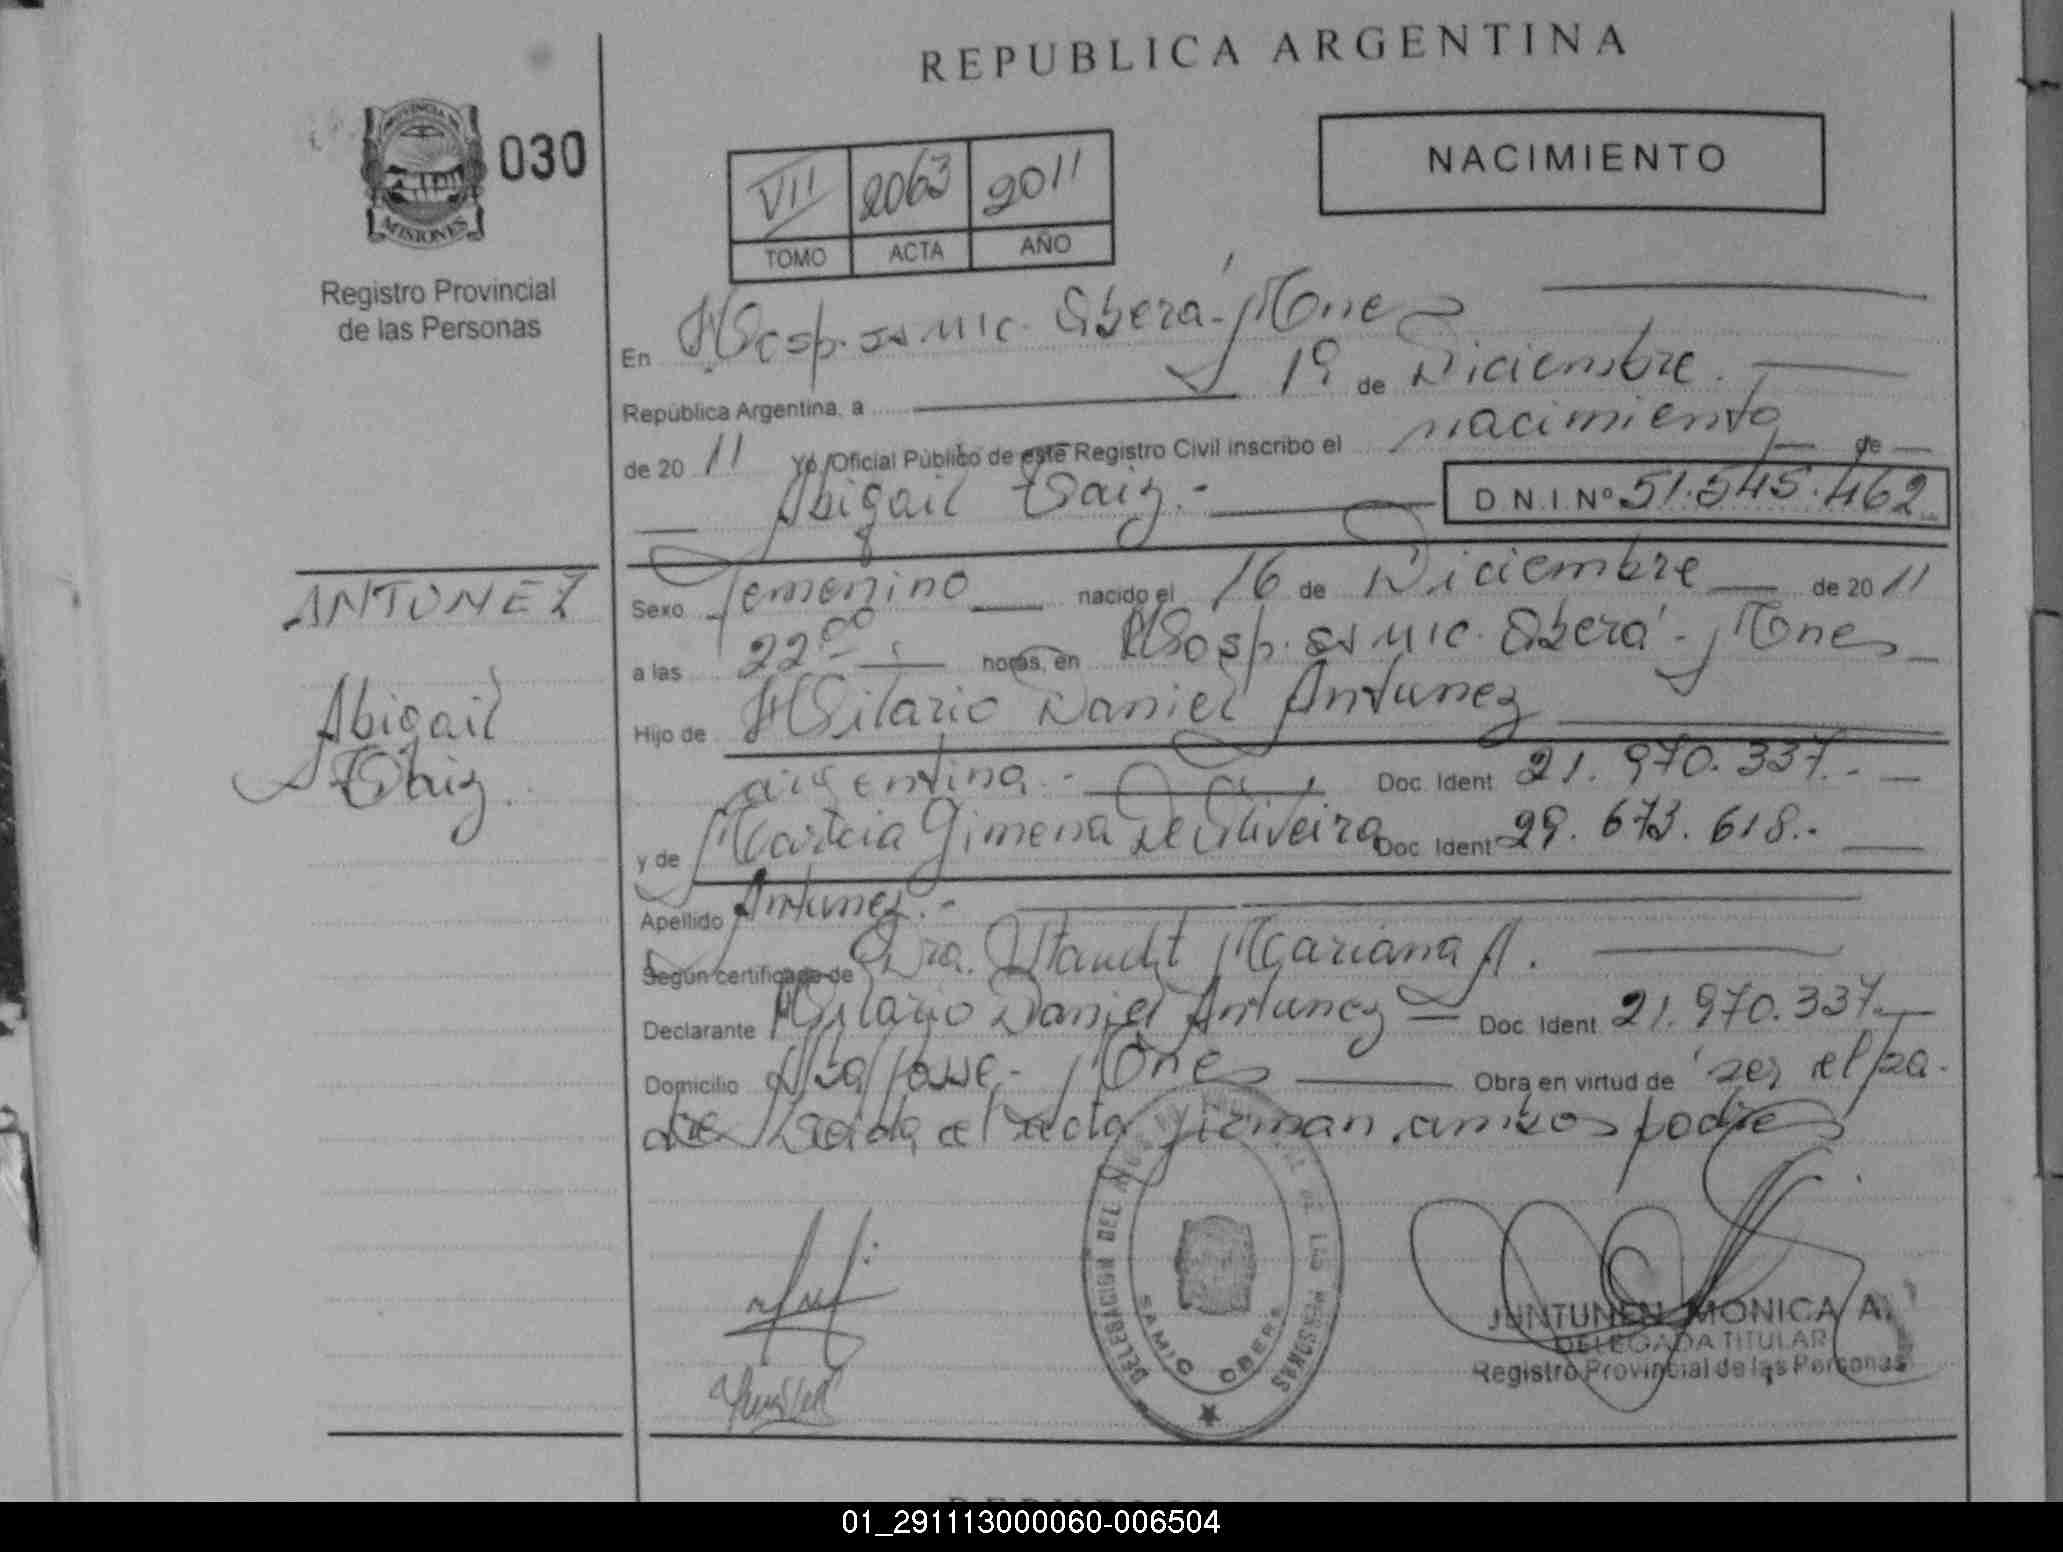 REPUBLICA ARGENTINA
PROVINCIA DE
MISIONES
030
Registro Provincial
de las Personas
VII 2063 2011
TOMO ACTA AÑO
NACIMIENTO
En Hosp. Samic. Oberá - Mnes
República Argentina, a 19 de Diciembre.
de 20 11 Yo, Oficial Público de este Registro Civil inscribo el nacimiento de
Abigail .-
D.N.I. Nº 51.545.462
ANTUNEZ
Abigail
Sexo femenino nacido el 16 de Diciembre de 20 11
a las 22 00 horas, en Hosp. Samic. Oberá - Mnes
Hijo de Hilario Daniel Antunez
argentina .- Doc. Ident 21.970.337.-
y de Marcia Gimena De Oliveira Doc. Ident 29.673.618.-
Apellido Antunez .-
Según certificado de Dra. Staudt Mariana A.
Declarante Hilario Daniel Antunez Doc. Ident 21.970.337.-
Domicilio Mnes Obra en virtud de ser el pa-
dre Leida el acta firman ambos padres
DELEGACION DEL DE LAS PERSONAS
SAMIC OBERA
JUNTUNEN MONICA A.
DELEGADA TITULAR
Registro Provincial de las Personas
01_291113000060-006504